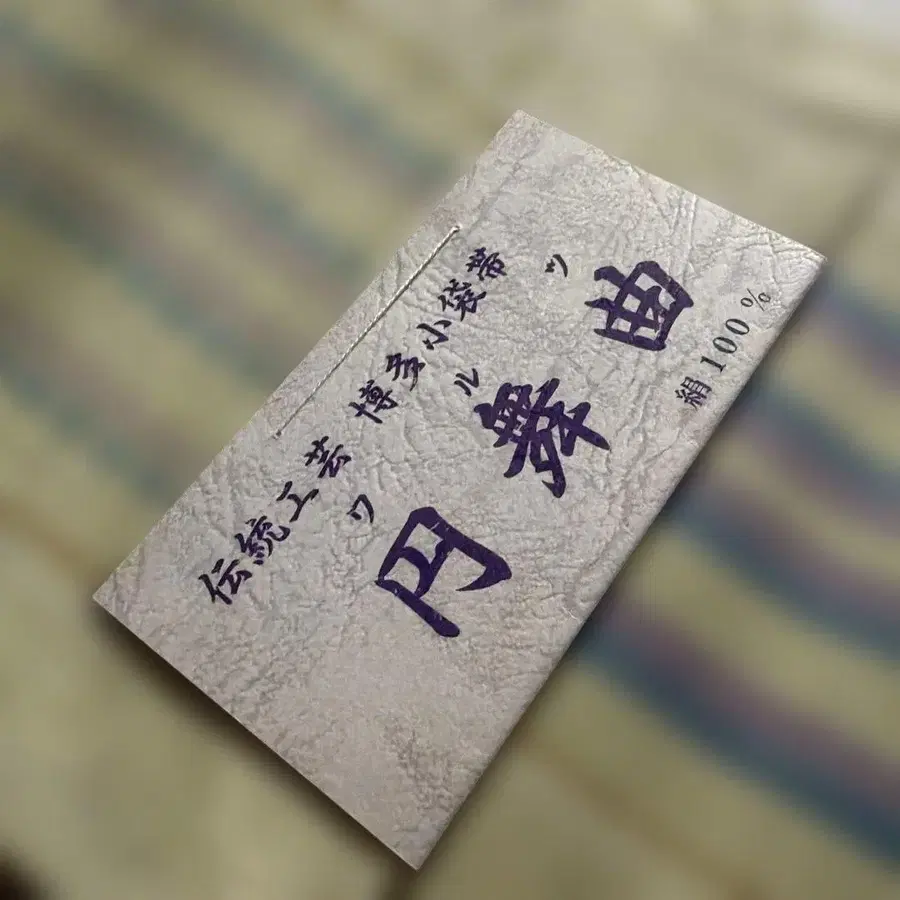 伝統工芸 博多小袋帯
ワルツ
円舞曲
絹100%